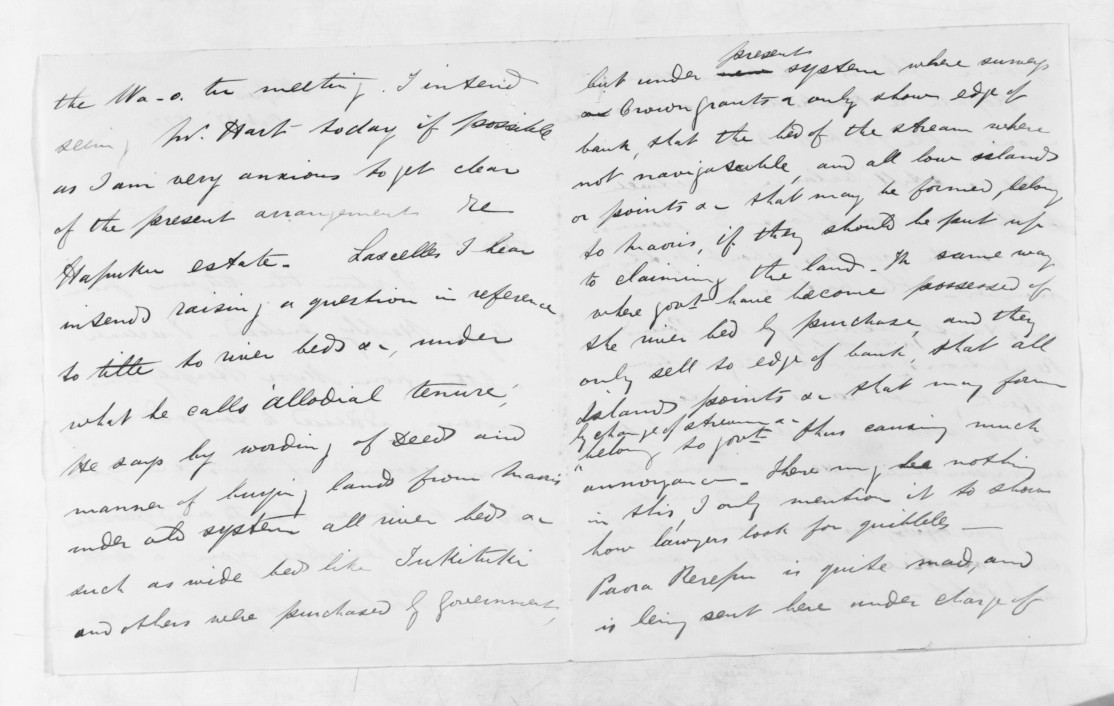 the Wa-o. the meeting. I intend
seeing Mr. Hart today if possible
as I am very anxious to get clear
of the present arrangements re
Hapuku estate - Lascelles I hear
intends raising a question in reference
to title to river beds &c, under
what he calls 'allodial tenure',
He says by wording of Deeds and
manner of buying lands from Maoris
under old system all river beds &c
such as wide beds like Tukituki
and others were purchased by Government,
but under present system where surveys
Crown grants &c only show edge of
bank, that the bed of the stream where
not navigatable, and all low islands
or points &c that may be formed, belong
to Maoris, if they should be put up
to claiming the land - In same way
where govt have become possessed of
the river bed by purchase, and they
only sell to edge of bank, that all
Islands points &c that may form
by change of stream &c
belong to govt thus causing much
annoyance - There may be nothing
in this, I only mention it to show
how lawyers look for quibbles -
Paora Rerepu is quite mad, and
is being sent here under charge of